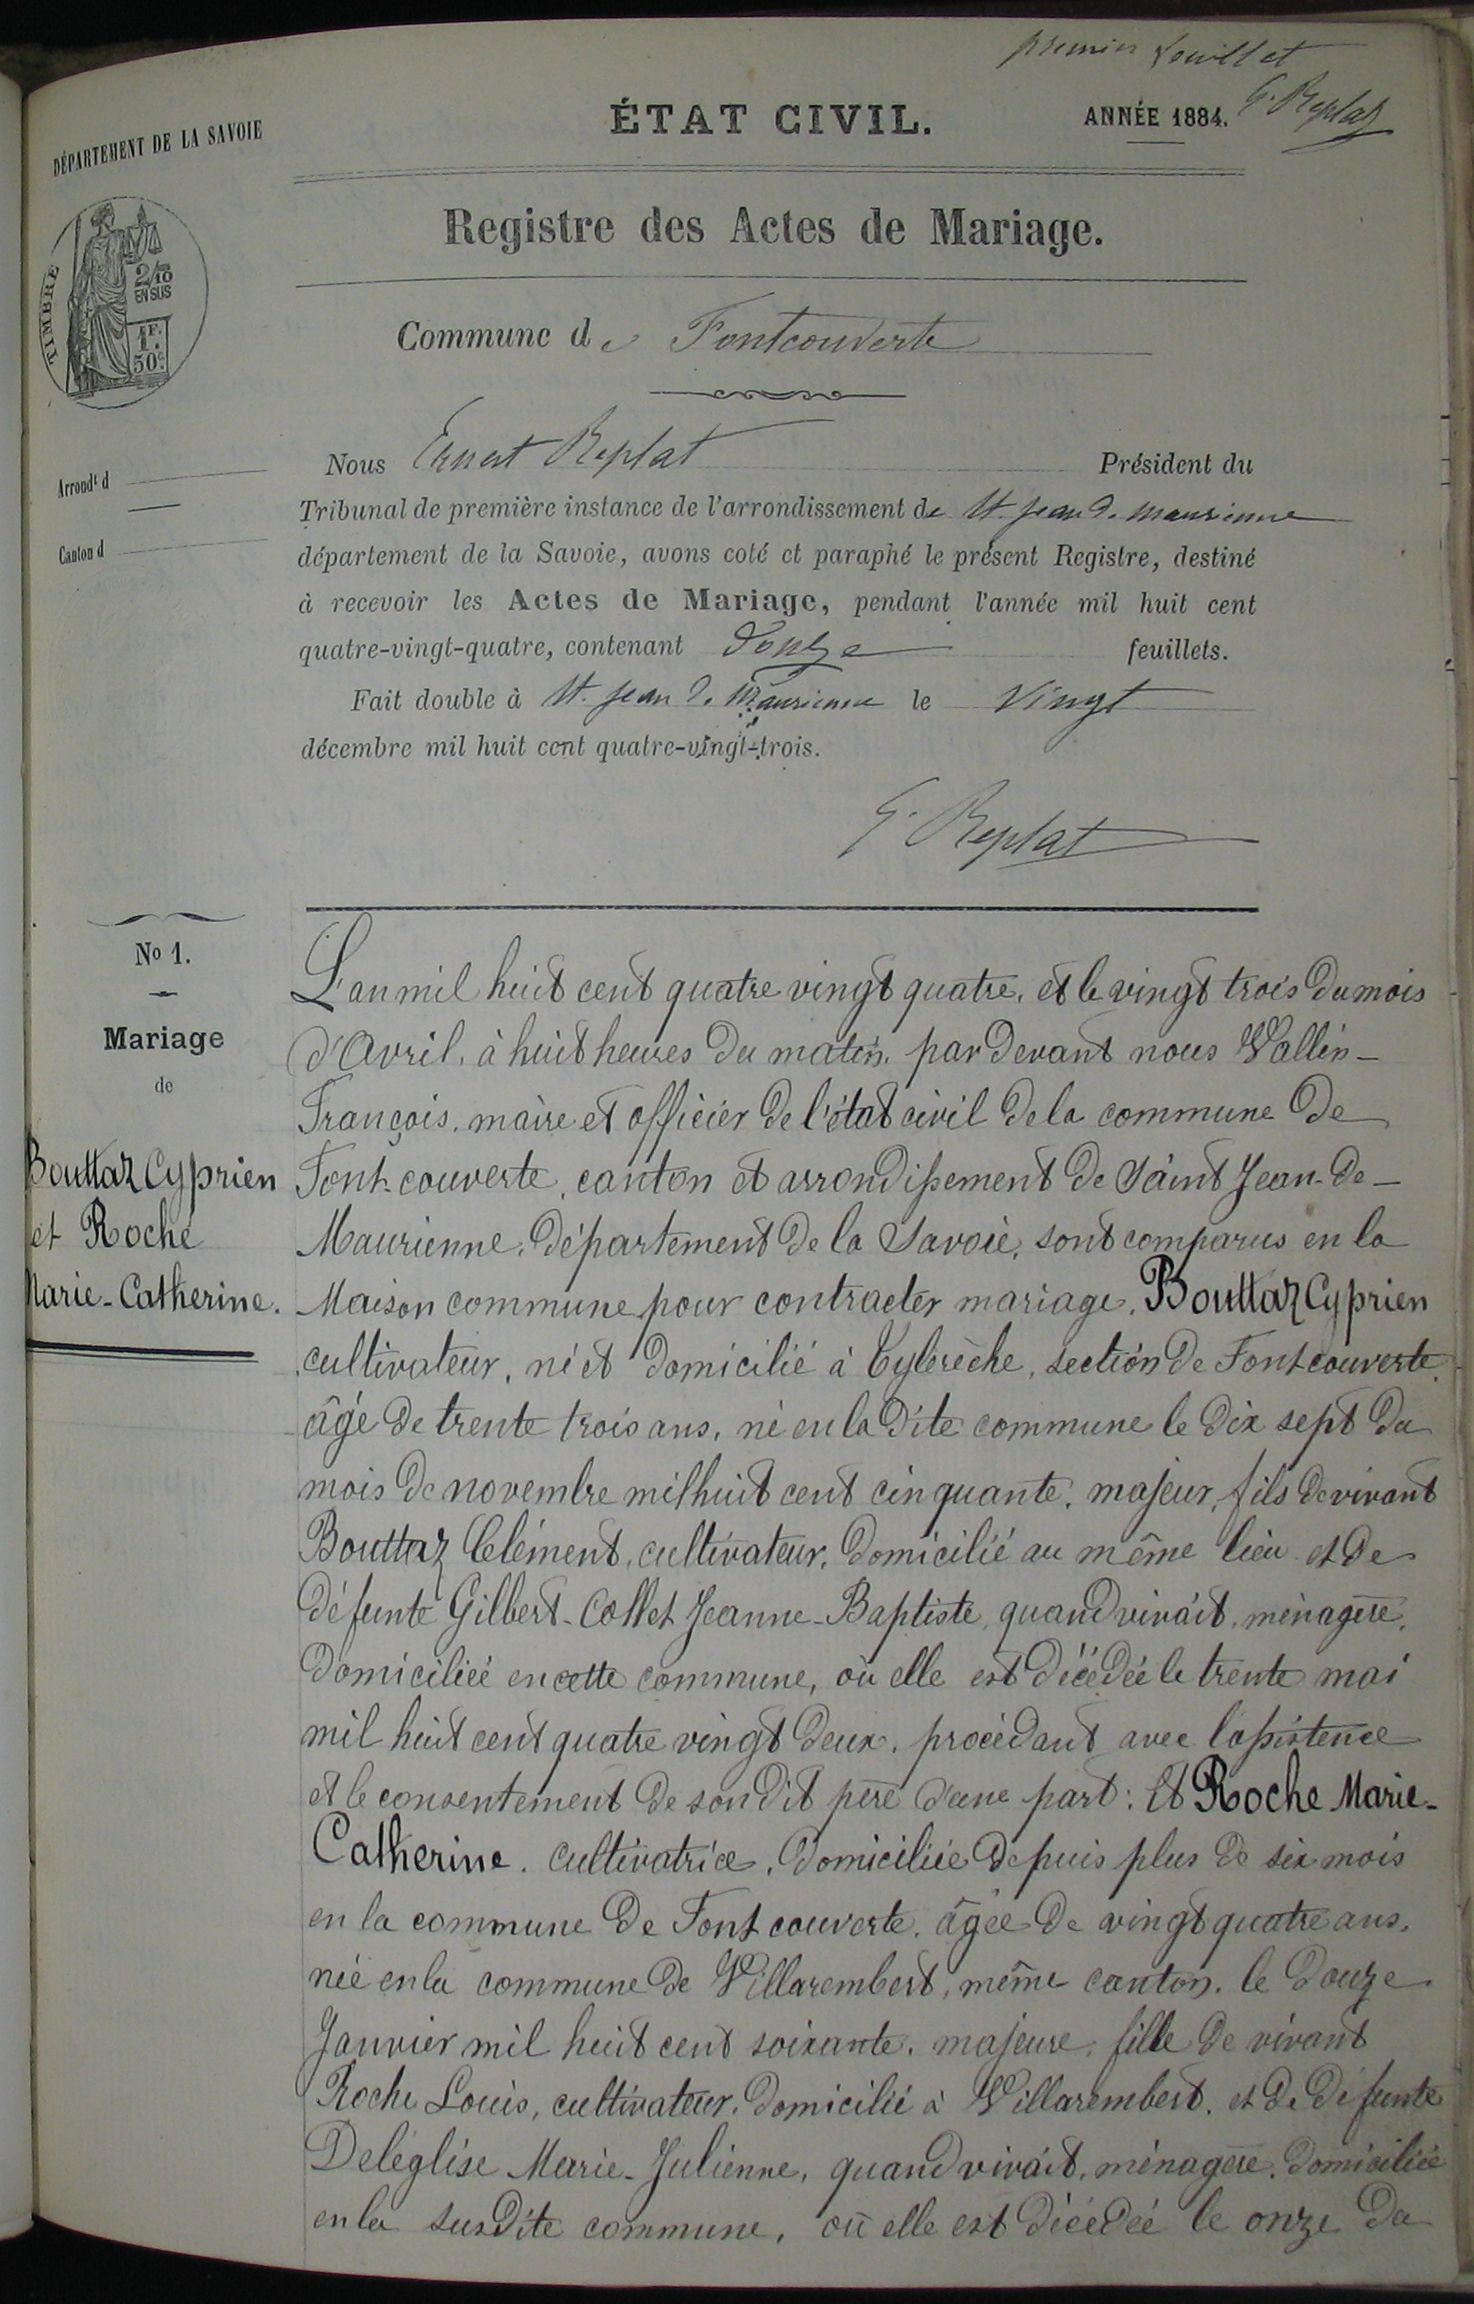 premier feuillet
E. Replat
DÉPARTEMENT DE LA SAVOIE
ÉTAT CIVIL.
ANNÉE 1884.
Registre des Actes de Mariage.
TIMBRE
2/10
EN SUS
1F.
50c.
Commune de Fontcouverte
Arrondt d
Canton d
Nous Ernest Replat Président du
Tribunal de première instance de l'arrondissement de St. Jean de Maurienne
département de la Savoie, avons coté et paraphé le présent Registre, destiné
à recevoir les Actes de Mariage, pendant l'année mil huit cent
quatre-vingt-quatre, contenant douze feuillets.
Fait double à St. Jean de Maurienne le vingt
décembre mil huit cent quatre-vingt-trois.
E. Replat
No 1.
Mariage
de
Bouttaz Cyprien
et Roche
Marie-Catherine.
L'an mil huit cent quatre vingt quatre, et le vingt trois du mois
d'Avril, à huit heures du matin, par devant nous Vallin-
François, maire et officier de l'état civil de la commune de
Font-couverte, canton et arrondissement de Saint Jean-de-
Maurienne, département de la Savoie, sont comparus en la
Maison commune pour contracter mariage, Bouttaz Cyprien
cultivateur, né et domicilié à Eylerèche, section de Fontcouverte,
âgé de trente trois ans, né en la dite commune le dix sept du
mois de novembre mil huit cent cinquante, majeur, fils de vivant
Bouttaz Clément, cultivateur, domicilié au même lieu et de
défunte Gilbert-Collet Jeanne-Baptiste, quand vivait, ménagère,
domiciliée en cette commune, où elle est décédée le trente mai
mil huit cent quatre vingt deux, procédant avec l'assistence
et le consentement de son dit père d'une part : Et Roche Marie-
Catherine, cultivatrice, domiciliée depuis plus de six mois
en la commune de Font couverte, âgée de vingt quatre ans,
née en la commune de Villarembert, même canton, le douze
Janvier mil huit cent soixante, majeure, fille de vivant
Roche Louis, cultivateur, domicilié à Villarembert, et de défunte
Deléglise Marie-Julienne, quand vivait, ménagère, domiciliée
en la susdite commune, où elle est décédée le onze du